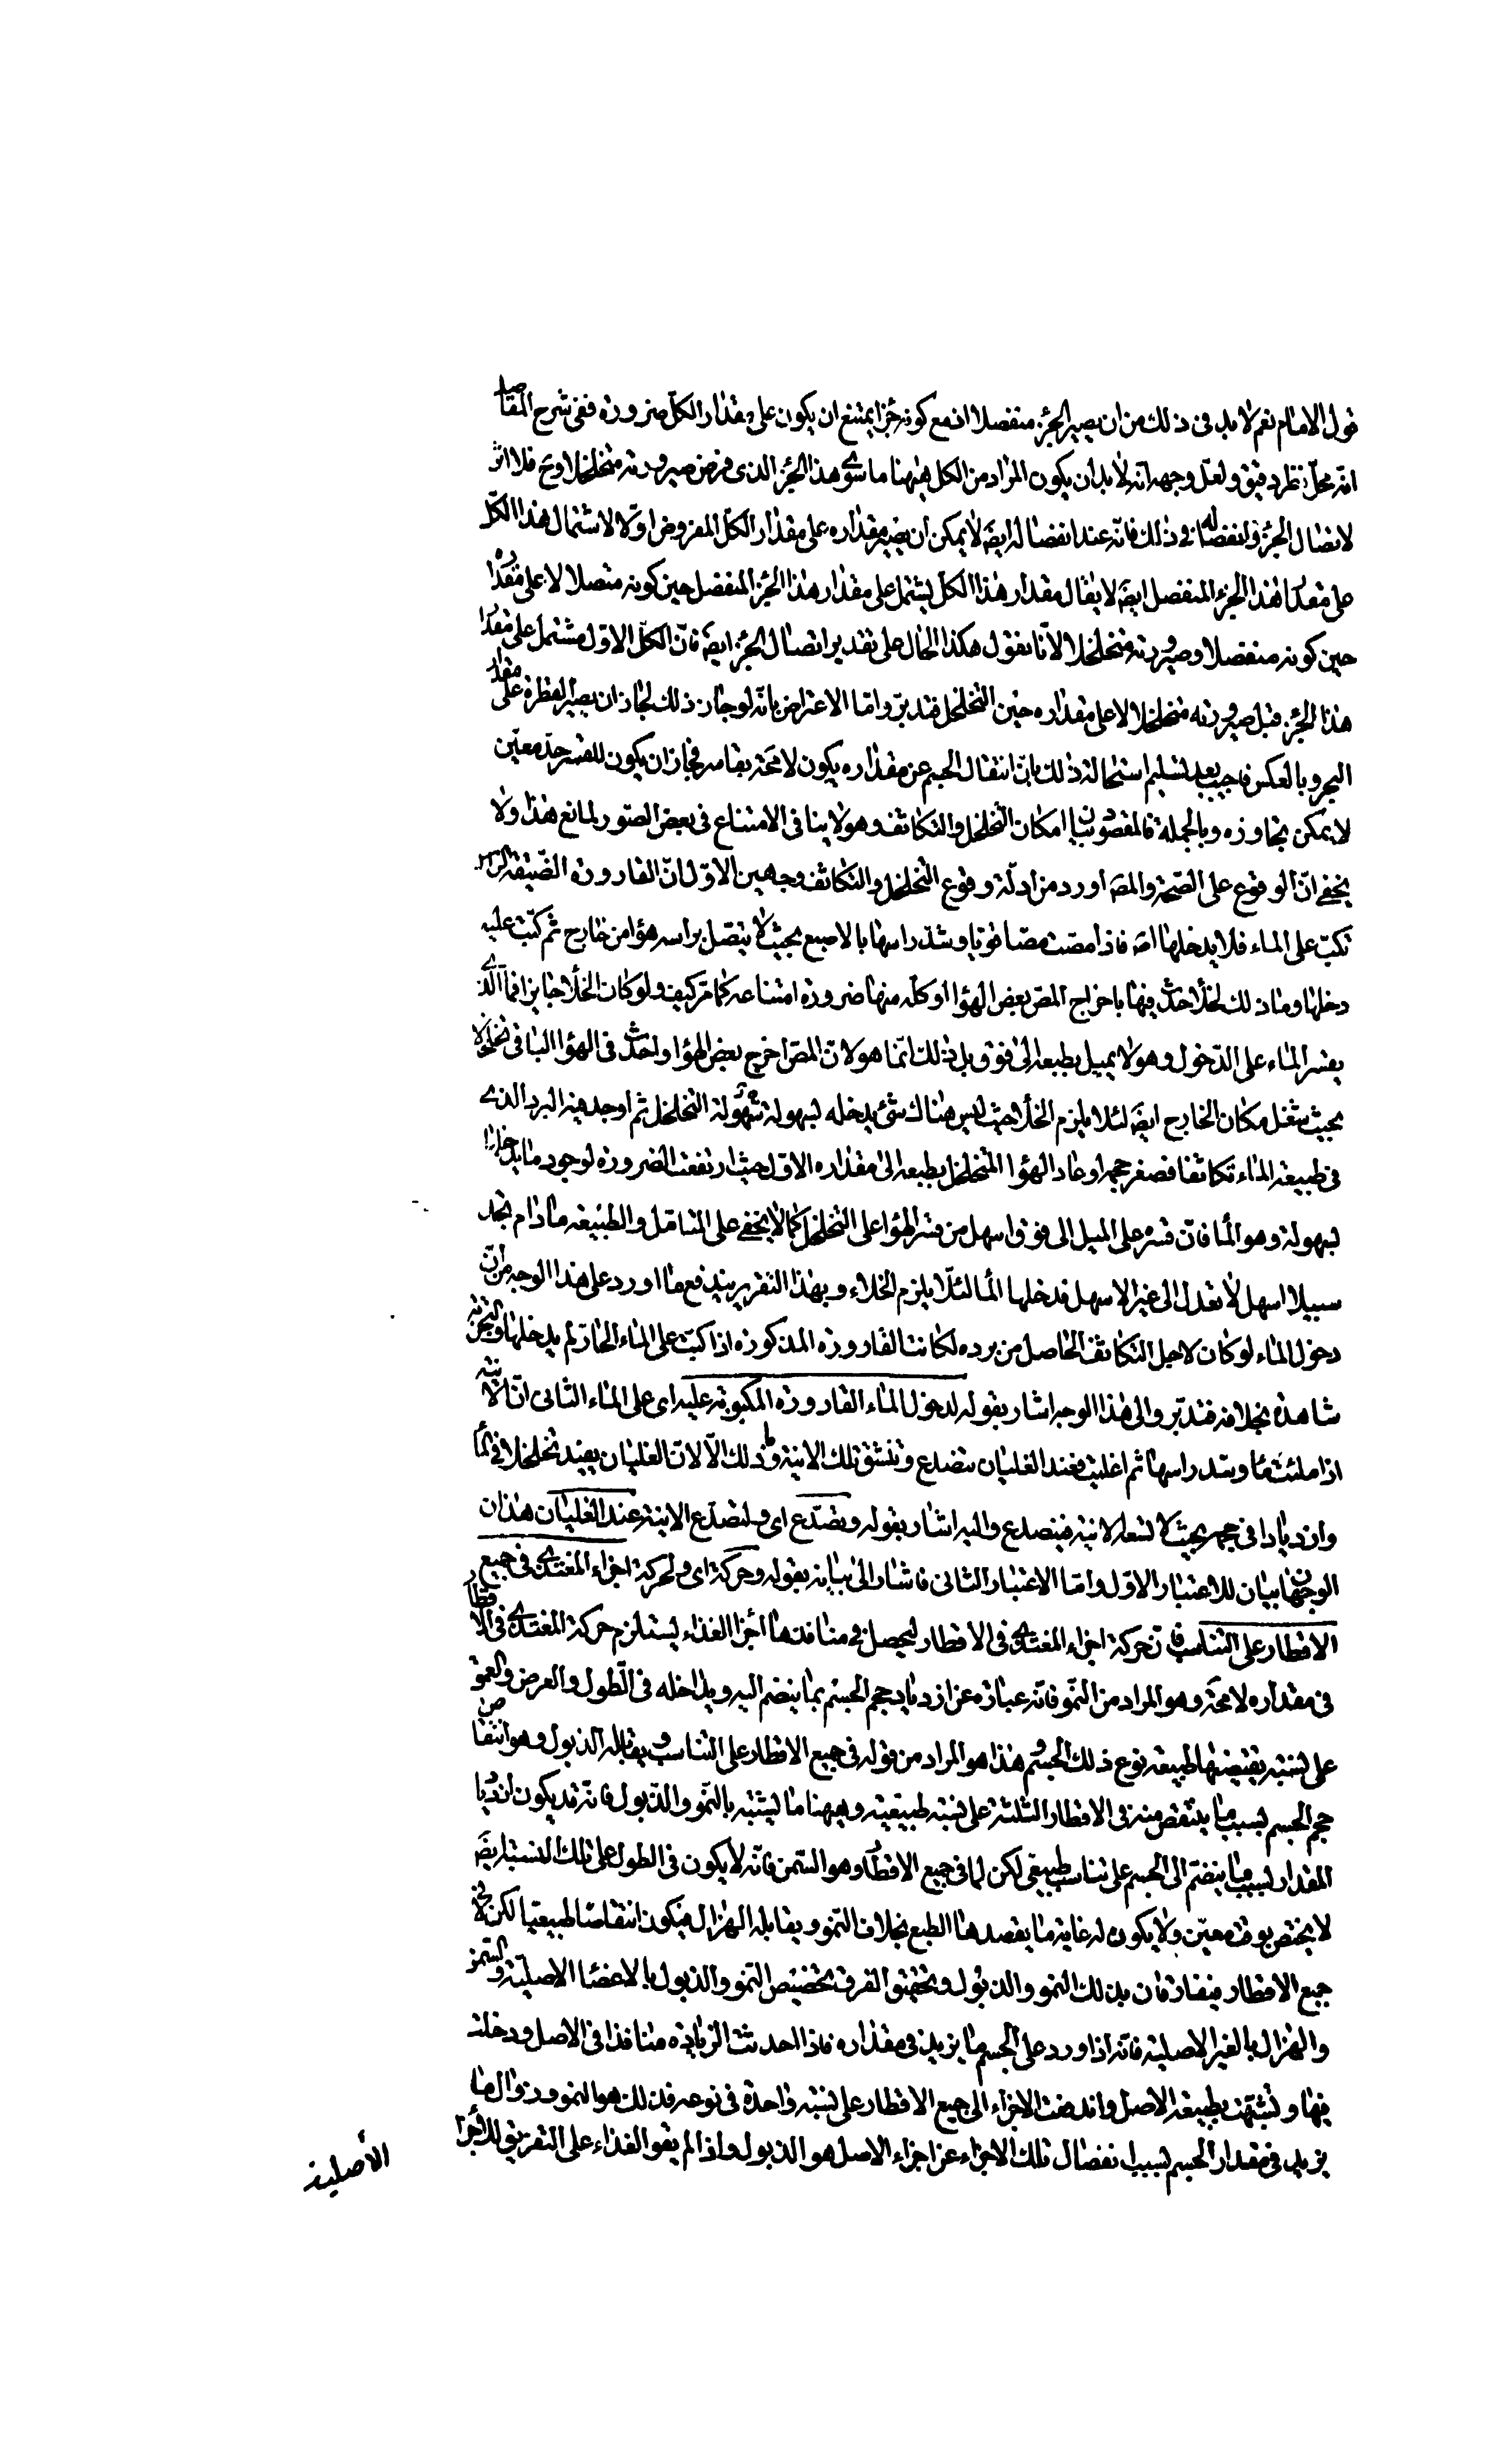 قول الامام نعم لا بد فى ذلك من ان يصير الجزء منفصلا اذ مع كونه جزءا يمتنع ان يكون على مقدار الكل ضرورة ففى شرح المقاصد
انه محل نظر دقيق ولعل وجهه انه لا بد ان يكون المراد من الكل ههنا ما سوى هذا الجزء الذى فرض صيرورته متخلخلا وح فلا اثر
لاتصال الجزء وانفصاله فى ذلك فانه عند انفصاله ايضا لا يمكن ان يصير مقداره على مقدار الكل المفروض اولا لاشتمال هذا الكل
على مقدار هذا الجزء المنفصل ايضا لا يقال مقدار هذا الكل يشتمل على مقدار هذا الجزء المنفصل حين كونه متصلا لا على مقداره
حين كونه منفصلا وصيرورته متخلخلا لانا نقول هكذا الحال على تقدير اتصال الجزء ايضا فان الكل الاول مشتمل على مقدار
هذا الجزء قبل صيرورته متخلخلا لا على مقداره حين التخلخل فتدبر واما الاعتراض بانه لو جاز ذلك لجاز ان يصير القطرة على مقدار
البحر وبالعكس فاجيب بعد تسليم استحالة ذلك بان انتقال الجسم عن مقداره يكون لا محة بقاسر فجاز ان يكون للقسر حد معين
لا يمكن تجاوزه وبالجملة فالمقصود بيان امكان التخلخل والتكاثف وهو لا ينافى الامتناع فى بعض الصور لمانع هذا ولا
يخفى ان الوقوع على الصحة والمصه اورد من ادلة وقوع التخلخل والتكاثف وجهين الاول ان القارورة الضيقة الراس
تكب على الماء فلا يدخلها اصه فاذا مصت مصا قويا وشد راسها بالاصبع بحيث لا يتصل براسه هواء من خارج ثم كبت عليه
دخلها وما ذلك لخلأ حدث فيها باخراج المص بعض الهواء او كله منها ضرورة امتناعه كما مر كيف ولو كان الخلأ جايزا فما الذى
يقسر الماء على الدخول وهو لا يميل بطبعه الى فوق بل ذلك انما هو لان المص اخرج بعض الهواء واحدث فى الهواء الباقى تخلخلا
بحيث شغل مكان الخارج ايضا لئلا يلزم الخلأ حيث ليس هناك شئ يدخله لسهولة سهولة التخلخل ثم اوجد فيه البرد الذى
فى طبيعة الماء تكاثفا فصغر حجمه او عاد الهواء المتخلخل بطبعه الى مقداره الاول حيث ارتفعت الضرورة لوجود ما يدخلها
بسهولة وهو الماء فان قسره على الميل الى فوق اسهل من قسر الهواء على التخلخل كما لا يخفى على المتامل والطبيعة ما دام تجد
سبيلا اسهل لا تعدل الى غير الاسهل فدخلها الماء لئلا يلزم الخلاء وبهذا التقرير يندفع ما اورد على هذا الوجه من ان
دخول الماء لو كان لاجل التكاثف الحاصل من برده لكانت القارورة المذكورة اذا كبت على الماء الحار لم يدخلها والتجربة
شاهدة بخلافه فتدبر والى هذا الوجه اشار بقوله لدخول الماء القارورة المكبوبة عليه اى على الماء الثانى ان الآنية
اذا ملئت ماء وسد راسها ثم اغليت فعند الغليان تتصدع وتنشق تلك الانية وما ذلك الا لان الغليان يفيد تخلخلا فى الماء
وازديادا فى حجمه بحيث لا تسعه الانية فينصدع واليه اشار بقوله وتصدع اى ولتصدع الانية عند الغليان هذان
الوجهان بيان للاعتبار الاول واما الاعتبار الثانى فاشار الى بيانه بقوله وحركة اى ولحركة اجزاء المغتذى فى جميع
الاقطار على التناسب فان حركة اجزاء المغتذى فى الاقطار ليحصل فى منافذها اجزاء الغذاء يستلزم حركة المغتذى فى الاقطار
فى مقداره لا محة وهو المراد من النمو فانه عبارة عن ازدياد حجم الجسم بما ينضم اليه ويداخله فى الطول والعرض والعمق
على نسبة يقتضيها طبيعة نوع ذلك الجسم وهذا هو المراد من قوله فى جميع الاقطار على التناسب ويقابله الذبول وهو انتقاص
حجم الجسم بسبب ما ينتقص منه فى الاقطار الثلثة على نسبة طبيعية وههنا ما يشتبه بالنمو والذبول فانه قد يكون ازدياد
المقدار بسبب ما ينضم الى الجسم على تناسب طبيعى لكن لا فى جميع الاقطار وهو السمن فانه لا يكون فى الطول على تلك النسبة ايضا
لا يختص بوقت معين ولا يكون له غاية ما يقصدها الطبع بخلاف النمو ويقابله الهزال فيكون انتقاصا طبيعيا لكن لا فى
جميع الاقطار فيفارقان بذلك النمو والذبول وتحقيق الفرق تخصيص النمو والذبول بالاعضاء الاصلية والسمن
والهزال بالغير الاصلية فانه اذا ورد على الجسم ما يزيد فى مقداره فاذا احدثت الزيادة منافذ فى الاصل ودخلت
فيها وتشبهت بطبيعة الاصل واندفعت الاجزاء الى جميع الاقطار على نسبة واحدة فى نوعه فذلك هو النمو وزوال ما
يزيد فى مقدار الجسم بسبب انفصال تلك الاجزاء عن اجزاء الاصل هو الذبول واذا لم يقو الغذاء على التفريق للاجزاء
الأصلية